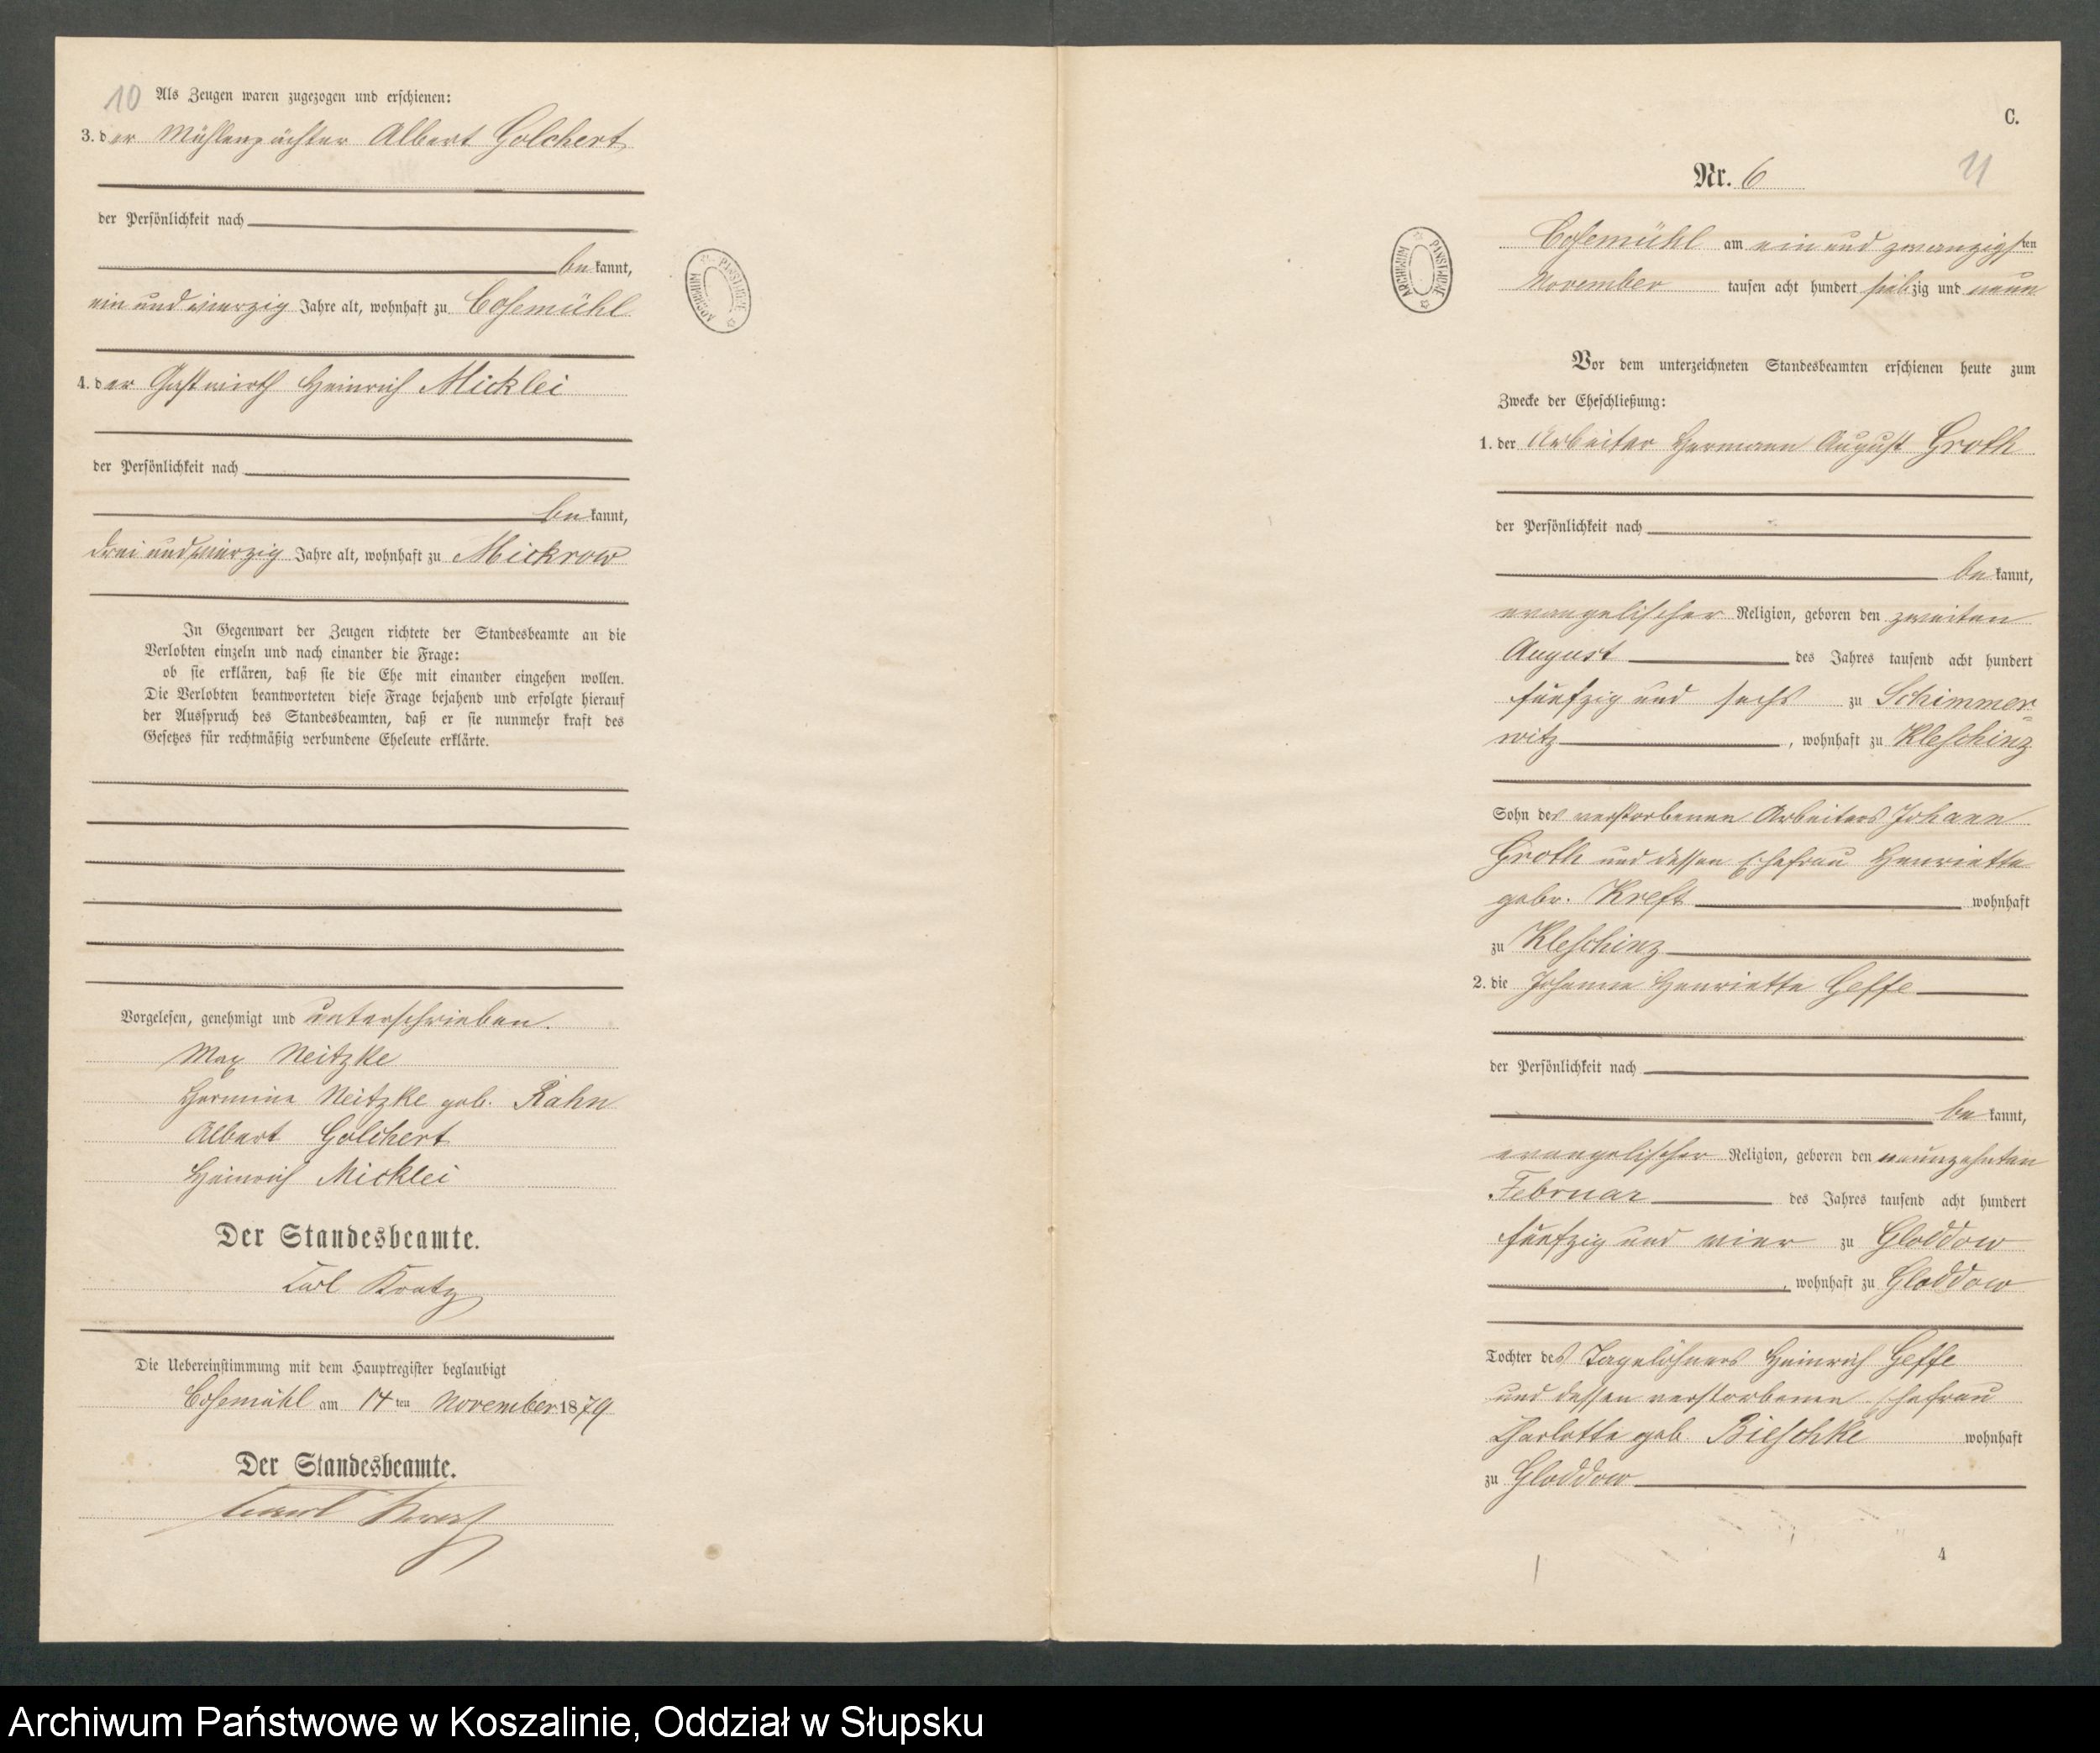 10
Als Zeugen waren zugezogen und erschienen:
3. der Mühlenpächter Albert Golchert
der Persönlichkeit nach
bekannt,
ein und vierzig Jahre alt, wohnhaft zu Cosemühl
4. der Gastwirth Heinrich Micklei
der Persönlichkeit nach
bekannt,
drei und vierzig Jahre alt, wohnhaft zu Mickrow
In Gegenwart der Zeugen richtete der Standesbeamte an die
Verlobten einzeln und nach einander die Frage:
ob sie erklären, daß sie die Ehe mit einander eingehen wollen.
Die Verlobten beantworteten diese Frage bejahend und erfolgte hierauf
der Ausspruch des Standesbeamten, daß er sie nunmehr kraft des
Gesetzes für rechtmäßig verbundene Eheleute erklärte.
Vorgelesen, genehmigt und unterschrieben.
Max Neitzke
Hermine Neitzke geb. Rahn
Albert Golchert
Heinrich Micklei
Der Standesbeamte.
Carl Kratz
Die Uebereinstimmung mit dem Hauptregister beglaubigt
Cosemühl am 14ten November 1879
Der Standesbeamte.
ARCHIWUM PAŃSTWOWE
C.
11
Nr. 6
ARCHIWUM PAŃSTWOWE
Cosemühl am ein und zwanzigsten
November tausen acht hundert siebzig und neun
Vor dem unterzeichneten Standesbeamten erschienen heute zum
Zwecke der Eheschließung:
1. der Arbeiter Hermann August Groth
der Persönlichkeit nach
bekannt,
evangelischer Religion, geboren den zweiten
August des Jahres tausend acht hundert
fünfzig und sechs zu Schimmer
witz, wohnhaft zu Kleschinz
Sohn des verstorbenen Arbeiters Johann
Groth und dessen Ehefrau Henriette
gebr. Kreft wohnhaft
zu Kleschinz
2. die Johanne Henriette Geffe
der Persönlichkeit nach
bekannt,
evangelischer Religion, geboren den neunzehnten
Februar des Jahres tausend acht hundert
fünfzig und vier zu Gloddow
, wohnhaft zu Gloddow
Tochter des Tagelöhners Heinrich Geffe
und dessen verstorbenen Ehefrau
Charlotte geb. Bieschke wohnhaft
zu Gloddow
4
Archiwum Państwowe w Koszalinie, Oddział w Słupsku